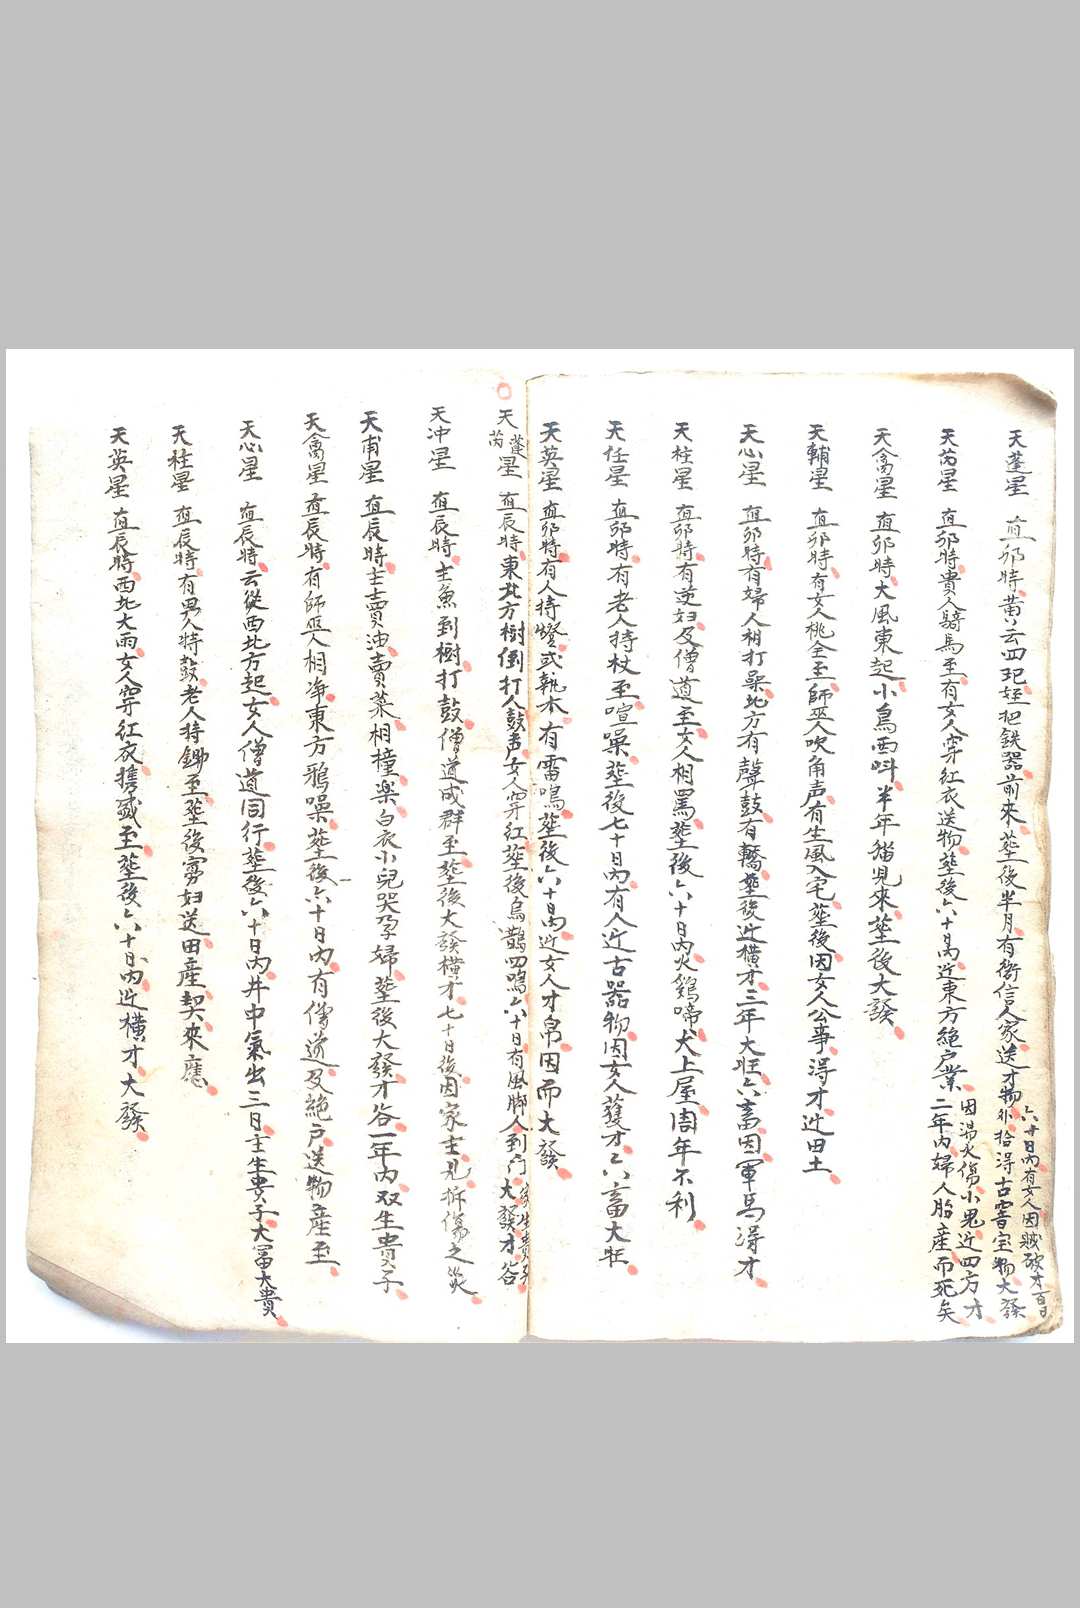 天蓬星 直卯時黄云四圯姪把鉄器前來塟後半月有衛信人家送才物
六十日內有女人因賊破才百日外拾得古窖宝物大發
天芮星 直卯時貴人騎馬至有女人穿紅衣送物塟後六十日內近東方絕户業
因湯火傷小鬼近四方才二年內婦人胎産而死矣
天禽星 直卯時大風東起小鳥西呌半年猫児來塟後大發
天輔星 直卯時有女人桃仝至師巫人吹角声有生風入宅塟後因女人公事淂才近田土
天心星 直卯時有婦人相打噪北方有聲鼓有轎塟後近横才三年大旺六畜因軍馬淂才
天柱星 直卯時有逆妇及僧道至女人相罵塟後六十日內火鷄啼犬上屋周年不利
天任星 直卯時有老人持杖至喧噪塟後七十日內有人近古器物因女人䕶才六畜大旺
天英星 直卯時有人持燈或執木有雷鳴塟後六十日內近女人才帛因而大發
天蓬芮星 直辰時東北方樹倒打人鼓声女人穿红塟後烏鵲四鳴六十日有風脚人到门大發才谷家生貴子
天冲星 直辰時主魚到樹打鼓僧道成群至塟後大發横才七十日後因家主見拆傷之災
天甫星 直辰時主賣油賣菜相撞楽白衣小兒哭孕婦塟後大發才谷一年內双生貴子
天禽星 直辰時有師巫人相净東方鴉噪塟後六十日內有僧道及絕户送物産至
天心星 直辰時云從西北方起女人僧道同行塟後六十日內井中氣出三日主生貴子大冨大貴
天柱星 直辰時有男人特鼓老人持鋤至塟後寡妇送田産契來應
天英星 直辰時西北大雨女人穿红衣携盛至塟後六十日內近横才大發